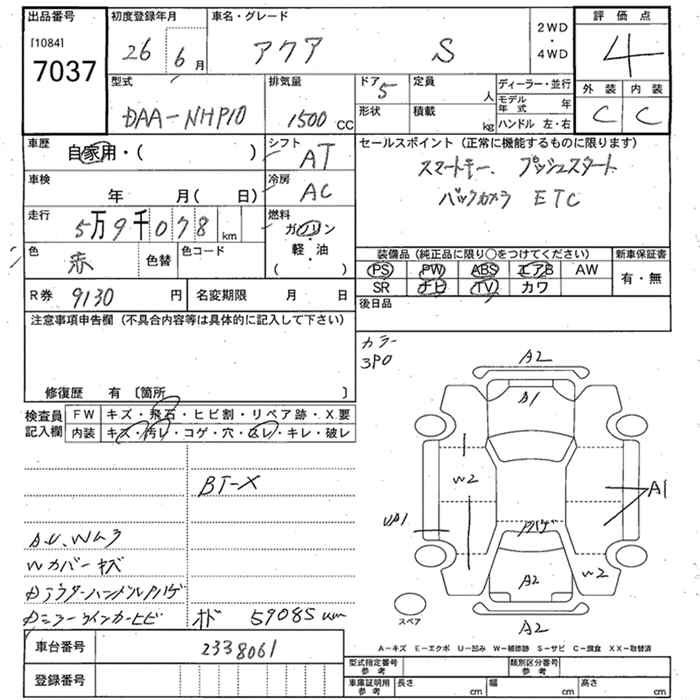 出品番号 初度登録年月 車名・グレード 評価点
[1084]
7037 26 6月 アクア S 2WD・4WD 4
型式 排気量 ドア 5 定員 人 ディーラー・並行 外装 内装
DAA-NHP10 1500 CC 形状 積載 kg モデル年式 年 C C
ハンドル 左・右
車歴 自家用・( ) シフト AT セールスポイント (正常に機能するものに限ります)
車検 年 月( 日) 冷房 AC スマートキー プッシュスタート
バックカメラ ETC
走行 5万9千078km 燃料 ガソリン・軽・油 ( )
色 赤 色替 色コード
装備品 (純正品に限り○をつけてください) 新車保証書
PS PW ABS エアB AW 有・無
SR ナビ TV カワ
R券 9130円 名変期限 月 日 後日品
注意事項申告欄 (不具合内容等は具体的に記入して下さい)
カラー
3P0
修復歴 有 [箇所 ]
検査員記入欄 FW キズ・飛石・ヒビ割・リペア跡・X要
内装 キズ・汚レ・コゲ・穴・スレ・キレ・破レ
A2
A1
W2
A1
ハゲ
A2
W2
A2
スペア
BT-X
Wカバーキズ
59085 km
A-キズ E-エクボ U-凹み W-補修跡 S-サビ C-腐食 XX-取替済
車台番号 2338061
登録番号
型式指定番号 参考 類別区分番号 参考
車庫証明用 参考 長さ cm 幅 cm 高さ cm